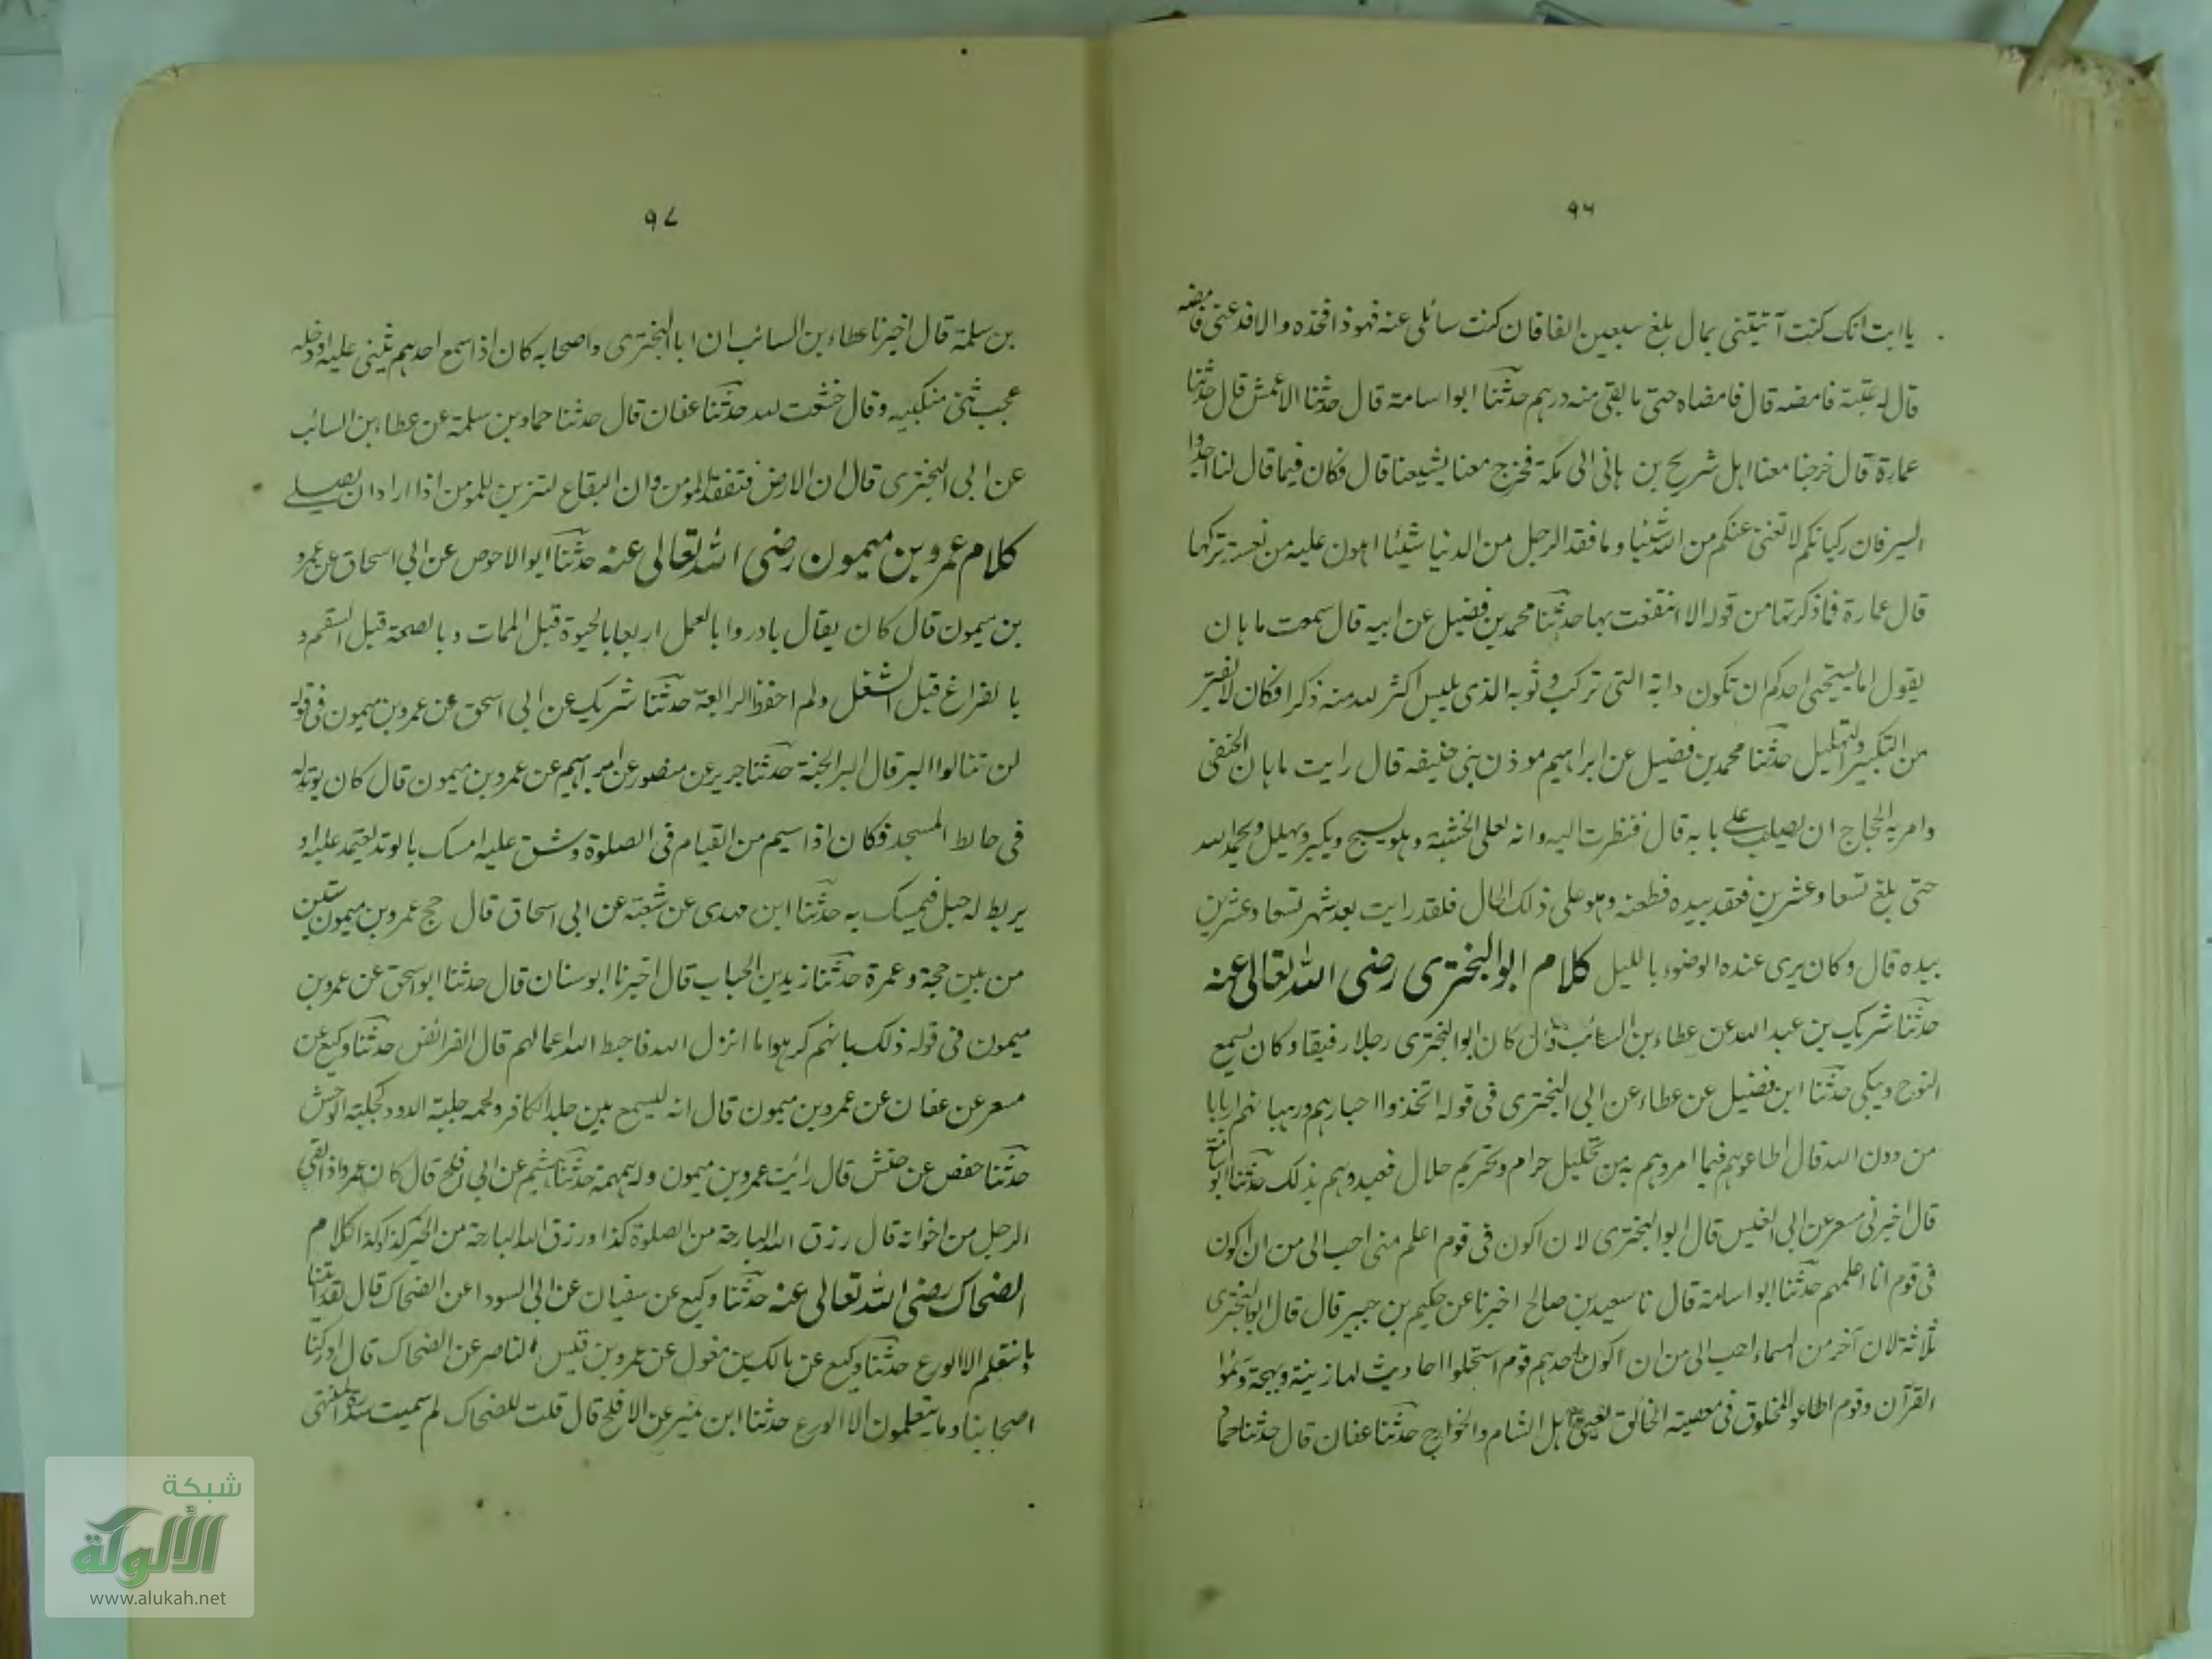 ٩٦
يا ابت انك كنت آتيتنى بمال بلغ سبعين الفا فان كنت سائلى عنه فهوذا فخذه والا فدعنى فامضه
قال له عتبة فامضه قال فامضاه حتى ما بقى منه درهم حدثنا ابو اسامة قال حدثنا الاعمش قال حدثنا
عمارة قال خرجنا معنا اهل شريح بن هانى الى مكة فخرج معنا يشيعنا قال فكان فيما قال لنا اجدوا
السير فان ركبانكم لا تغنى عنكم من الله شيئا وما فقد الرجل من الدنيا شيئا اهون عليه من نعسة تركها
قال عمارة فما ذكرتها من قوله الا انتفعت بها حدثنا محمد بن فضيل عن ابيه قال سمعت ماهان
يقول اما يستحيى احدكم ان تكون دابة التى تركب وثوبه الذى يلبس اكثر لله منه ذكرا فكان لا يفتر
من التكبير والتهليل حدثنا محمد بن فضيل عن ابراهيم موذن بنى حنيفه قال رايت ماهان الحنفى
وامر به الحجاج ان يصلب على بابه قال فنظرت اليه وانه لعلى الخشبة وهو يسبح ويكبر ويهلل ويحمد الله
حتى بلغ تسعا وعشرين فعقد بيده فطعنه وهو على ذلك الحال فلقد رايت بعد شهر تسعا وعشرين
بيده قال وكان يرى عنده الوضوء بالليل كلام ابو البخترى رضى الله تعالى عنه
حدثنا شريك بن عبد الله عن عطاء بن السائب قال كان ابو البخترى رجلا رفيقا وكان يسمع
النوح ويبكى حدثنا ابن فضيل عن عطاء عن ابى البخترى فى قوله اتخذوا احبارهم ورهبانهم اربابا
من دون الله قال اطاعوهم فيما امروهم به من تحليل حرام وتحريم حلال فعبدوهم بذلك حدثنا ابو
قال اخبرنى مسعر عن ابى قال ابو البخترى لان اكون فى قوم اعلم منى احب الى من ان اكون
فى قوم انا اعلمهم حدثنا ابو اسامة قال نا سعيد بن صالح اخبرنا عن حكيم بن جبير قال قال ابو البخترى
ثلاثة لان آخر من السماء احب الى من ان اكون احدهم قوم استحلوا احاديث لها زينة وبهجة وسئموا
القرآن وقوم اطاعوا المخلوق فى معصية الخالق يعنى اهل الشام والخوارج حدثنا عفان قال حدثنا حماد
٩٧
بن سلمة قال اخبرنا عطاء بن السائب ان ابا البخترى واصحابه كان اذا سمع احدهم يثنى عليه او دخله
عجب ثنى منكبيه وقال خشعت لله حدثنا عفان قال حدثنا حماد بن سلمة عن عطاء بن السائب
عن ابى البخترى قال ان الارض فتفقد المومن وان البقاع لتزين للمومن اذا اراد ان يصلى
كلام عمرو بن ميمون رضى الله تعالى عنه حدثنا ابو الاحوص عن ابى اسحاق عن عمرو
بن ميمون قال كان يقال بادروا بالعمل اربعا بالحيوة قبل الممات وبالصحة قبل السقم و
بالفراغ قبل الشغل ولم احفظ الرابعة حدثنا شريك عن ابى اسحق عن عمرو بن ميمون فى قوله
لن تنالوا البر قال البر الجنة حدثنا جرير عن منصور عن ابراهيم عن عمرو بن ميمون قال كان يوتد له
فى حائط المسجد فكان اذا سيم من القيام فى الصلوة وشق عليه امسك بالوتد يعتمد عليه او
يربط له حبل فيمسك به حدثنا ابن مهدى عن شعبة عن ابى اسحاق قال حج عمرو بن ميمون ستين
من بين حجة وعمرة حدثنا زيد بن الحباب قال اخبرنا ابو سنان قال حدثنا ابو اسحق عن عمرو بن
ميمون فى قوله ذلك بانهم كرهوا ما انزل الله فاحبط الله اعمالهم قال الفرائض حدثنا وكيع عن
مسعر عن عفان عن عمرو بن ميمون قال انه ليسمع بين جلد الكافر ولحمه جلبة الدود كجلبة الوحش
حدثنا حفص عن حنش قال رايت عمرو بن ميمون وله همهمة حدثنا هشيم عن ابى افلح قال كان عمرو اذا لقى
الرجل من اخوانه قال رزق الله البارحة من الصلوة كذا ورزق الله البارحة من الخير كذا وكذا كلام
الضحاك رضى الله تعالى عنه حدثنا وكيع عن سفيان عن ابى السوداء عن الضحاك قال لقد رايتنا
وما نتعلم الا الورع حدثنا وكيع عن مالك بن مغول عن عمرو بن قيس الناصر عن الضحاك قال ادركنا
اصحابنا وما يتعلمون الا الورع حدثنا ابن عن الافلح قال قلت للضحاك لم سميت سدرة المنتهى
شبكة
الألوكة
www.alukah.net